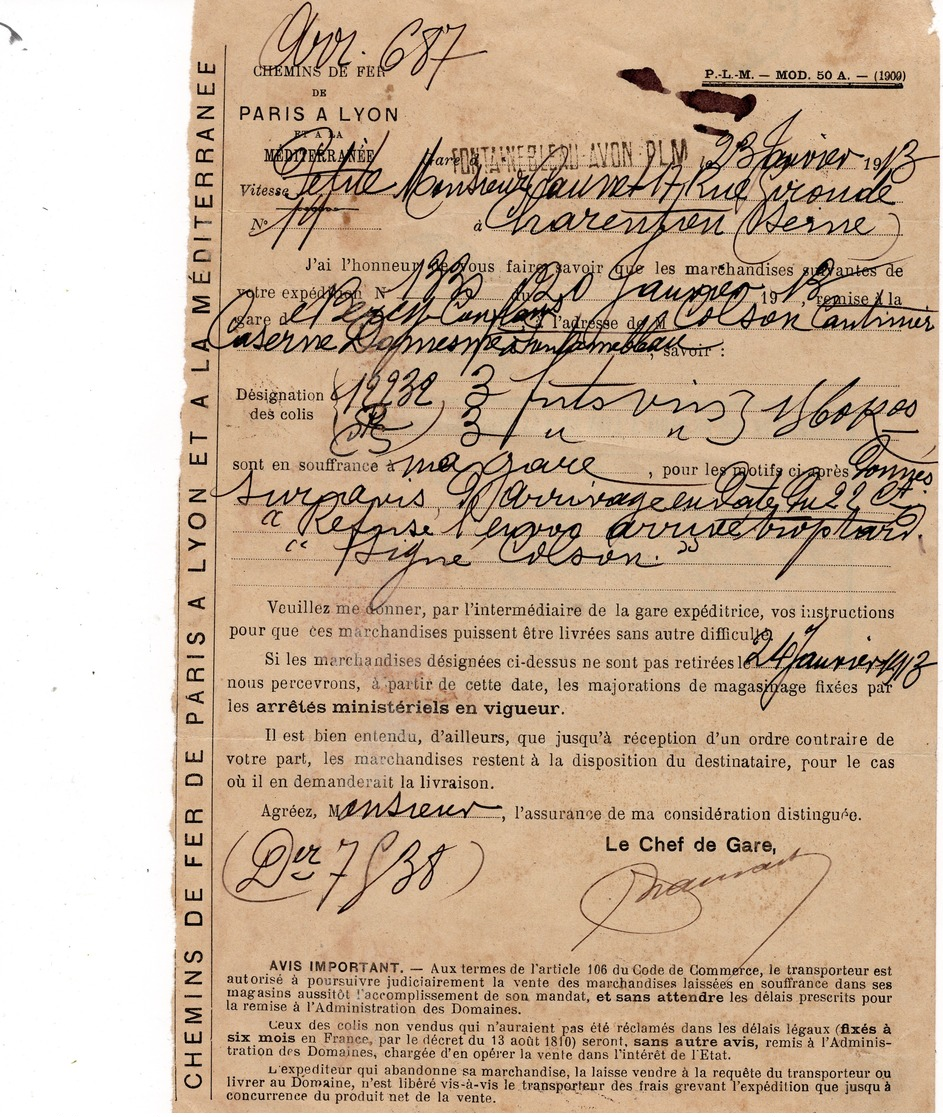 Arr. 687
CHEMINS DE FER
DE
PARIS A LYON
ET A LA
MÉDITERRANÉE
P.-L.-M. — MOD. 50 A. — (1909)
Gare d FONTAINEBLEAU-AVON PLM le 23 Janvier 1913
Vitesse Petite Monsieur Rue Gironde
N° 19 à Charenton (Seine)
J'ai l'honneur de vous faire savoir que les marchandises suivantes de
votre expédition N° 133 du 20 Janvier 1913 remise à la
gare de Bercy Conflans à l'adresse de M Colson Cantinier
Caserne Damesme Fontainebleau, savoir :
Désignation 12232 3 futs vins
des colis 3 " "
sont en souffrance à ma gare, pour les motifs ci-après Donnés
sur avis D'arrivage en Date Du 22 Ct.
" Refusé l'envoi arrivé trop tard.
" Signé Colson. "
Veuillez me donner, par l'intermédiaire de la gare expéditrice, vos instructions
pour que ces marchandises puissent être livrées sans autre difficulté.
Si les marchandises désignées ci-dessus ne sont pas retirées le 24 Janvier 1913
nous percevrons, à partir de cette date, les majorations de magasinage fixées par
les arrêtés ministériels en vigueur.
Il est bien entendu, d'ailleurs, que jusqu'à réception d'un ordre contraire de
votre part, les marchandises restent à la disposition du destinataire, pour le cas
où il en demanderait la livraison.
Agréez, Monsieur, l'assurance de ma considération distinguée.
Le Chef de Gare,
AVIS IMPORTANT. — Aux termes de l'article 106 du Code de Commerce, le transporteur est
autorisé à poursuivre judiciairement la vente des marchandises laissées en souffrance dans ses
magasins aussitôt l'accomplissement de son mandat, et sans attendre les délais prescrits pour
la remise à l'Administration des Domaines.
Ceux des colis non vendus qui n'auraient pas été réclamés dans les délais légaux (fixés à
six mois en France, par le décret du 13 août 1810) seront, sans autre avis, remis à l'Adminis-
tration des Domaines, chargée d'en opérer la vente dans l'intérêt de l'Etat.
L'expéditeur qui abandonne sa marchandise, la laisse vendre à la requête du transporteur ou
livrer au Domaine, n'est libéré vis-à-vis le transporteur des frais grevant l'expédition que jusqu'à
concurrence du produit net de la vente.
CHEMINS DE FER DE PARIS A LYON ET A LA MÉDITERRANÉE